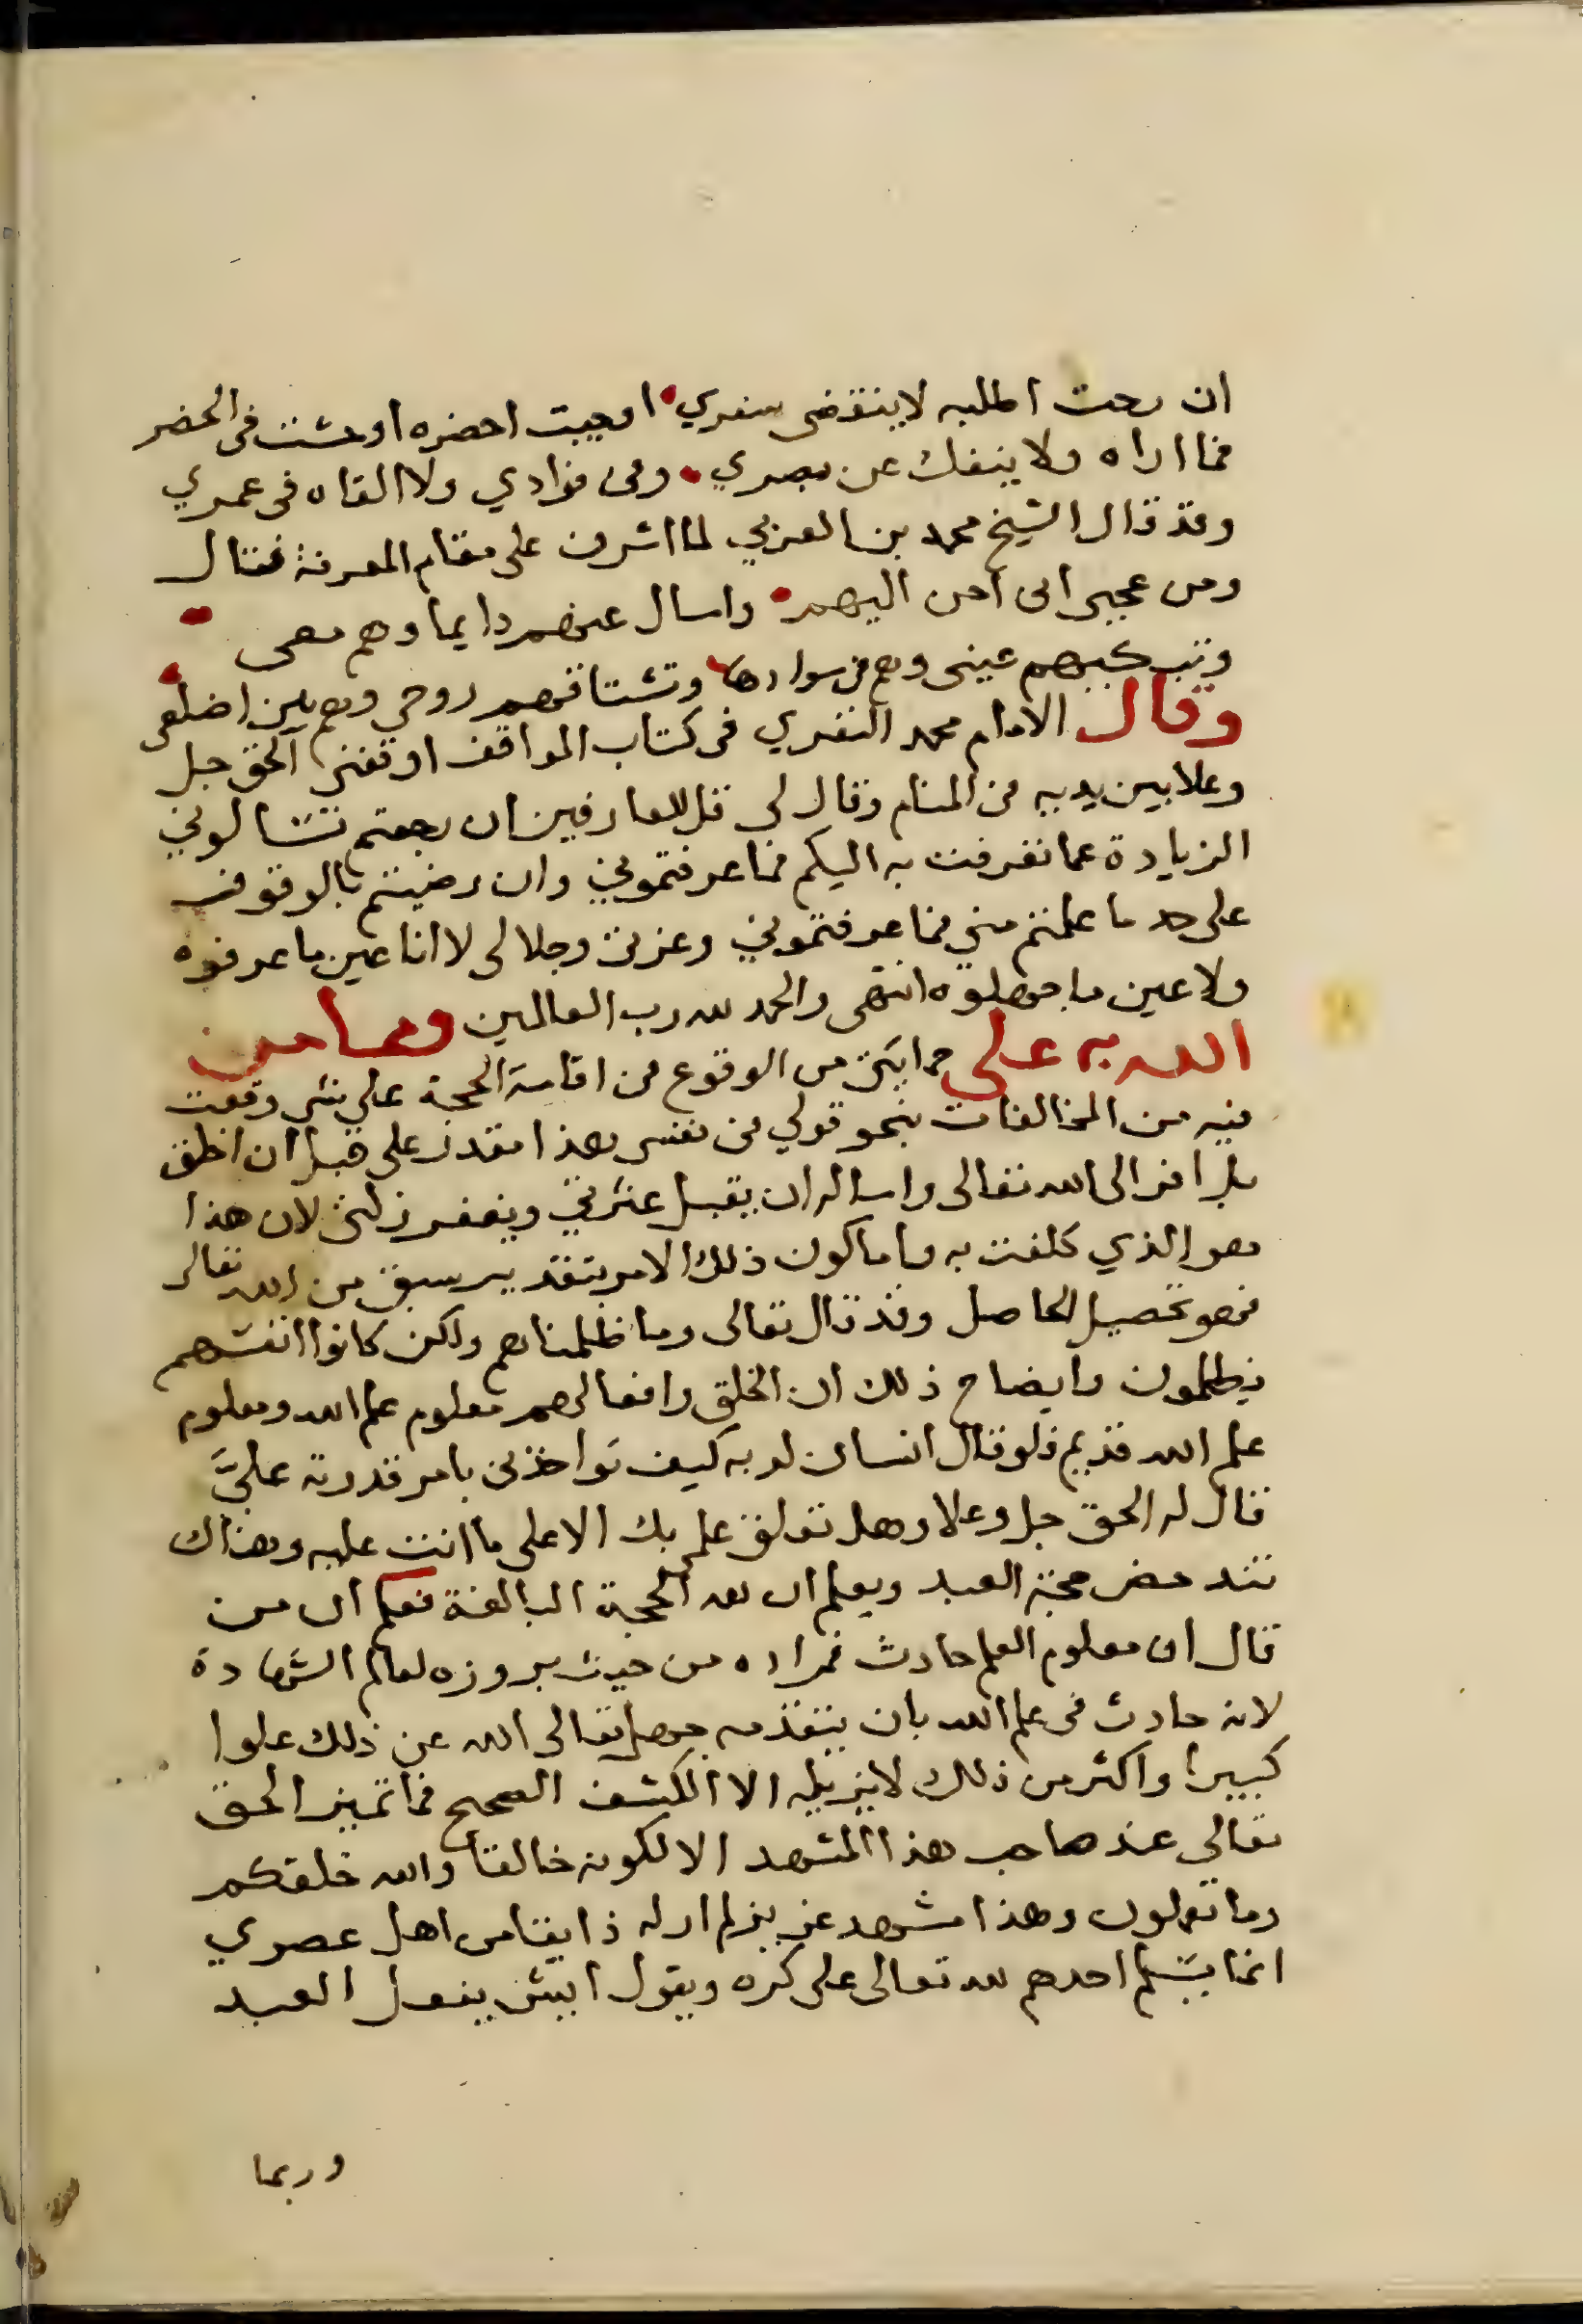 ان رحت اطلبه لا ينقضي سفري • اوجيت احضره اوحشت في الحضر
فما اراه ولا ينفك عن بصري • وفى فؤادي ولا القاه فى عمري
وقد قال الشيخ محمد بن العربي لما اشرف على مقام المعرفة فقال
ومن عجبى انى احن اليهم • واسال عنهم دايما وهم معى
وتبكيهم عينى وهم فى سوادها وتشتاقهم روحي وهم بين اضلعى
وقال الامام محمد النفري فى كتاب المواقف اوقفنى الحق جل
وعلا بين يديه فى المنام وقال لى قل للعارفين ان رجعتم تسالوني
الزيادة عما تعرفت به اليكم فما عرفتموني وان رضيتم بالوقوف
على حد ما علمتم مني فما عرفتموني وعزتى وجلالى لا انا عين ما عرفوه
ولا عين ما جهلوه انتهى والحمد لله رب العالمين ومما من
الله به على حمايتى من الوقوع فى اقامة الحجة على شى وقعت
فيه من المخالفات بنحو قولي فى نفسى هذا مقدر على قبل ان اخلق
بل افر الى الله تعالى واساله ان يقبل عثرتي ويغفر زلتى لان هذا
هو الذي كلفت به واما كون ذلك الامر بتقدير سبق من الله تعالى
فهو تحصيل الحاصل وقد قال تعالى وما ظلمناهم ولكن كانوا انفسهم
يظلمون وايضاح ذلك ان الخلق وافعالهم معلوم علم الله ومعلوم
علم الله قديم فلو قال انسان لربه كيف تواخذنى بامر قدرته عليَّ
قال له الحق جل وعلا وهل تعلق علمى بك الا على ما انت عليه وهناك
تندحض حجة العبد ويعلم ان لله الحجة البالغة فعلم ان من
قال ان معلوم العلم حادث فمراده من حيث بروزه لعالم الشهادة
لانه حادث فى علم الله بان يتقدمه جهل تعالى الله عن ذلك علوا
كبيرا واكثر من ذلك لا يزيله الا الكشف الصحيح فما تميز الحق
تعالى عند صاحب هذا المشهد الا لكونه خالقا والله خلقكم
وما تعملون وهذا مشهد عزيز لم ار له ذايقا من اهل عصري
انما يسلم احدهم لله تعالى على كره ويقول ايش يفعل العبد
وربما